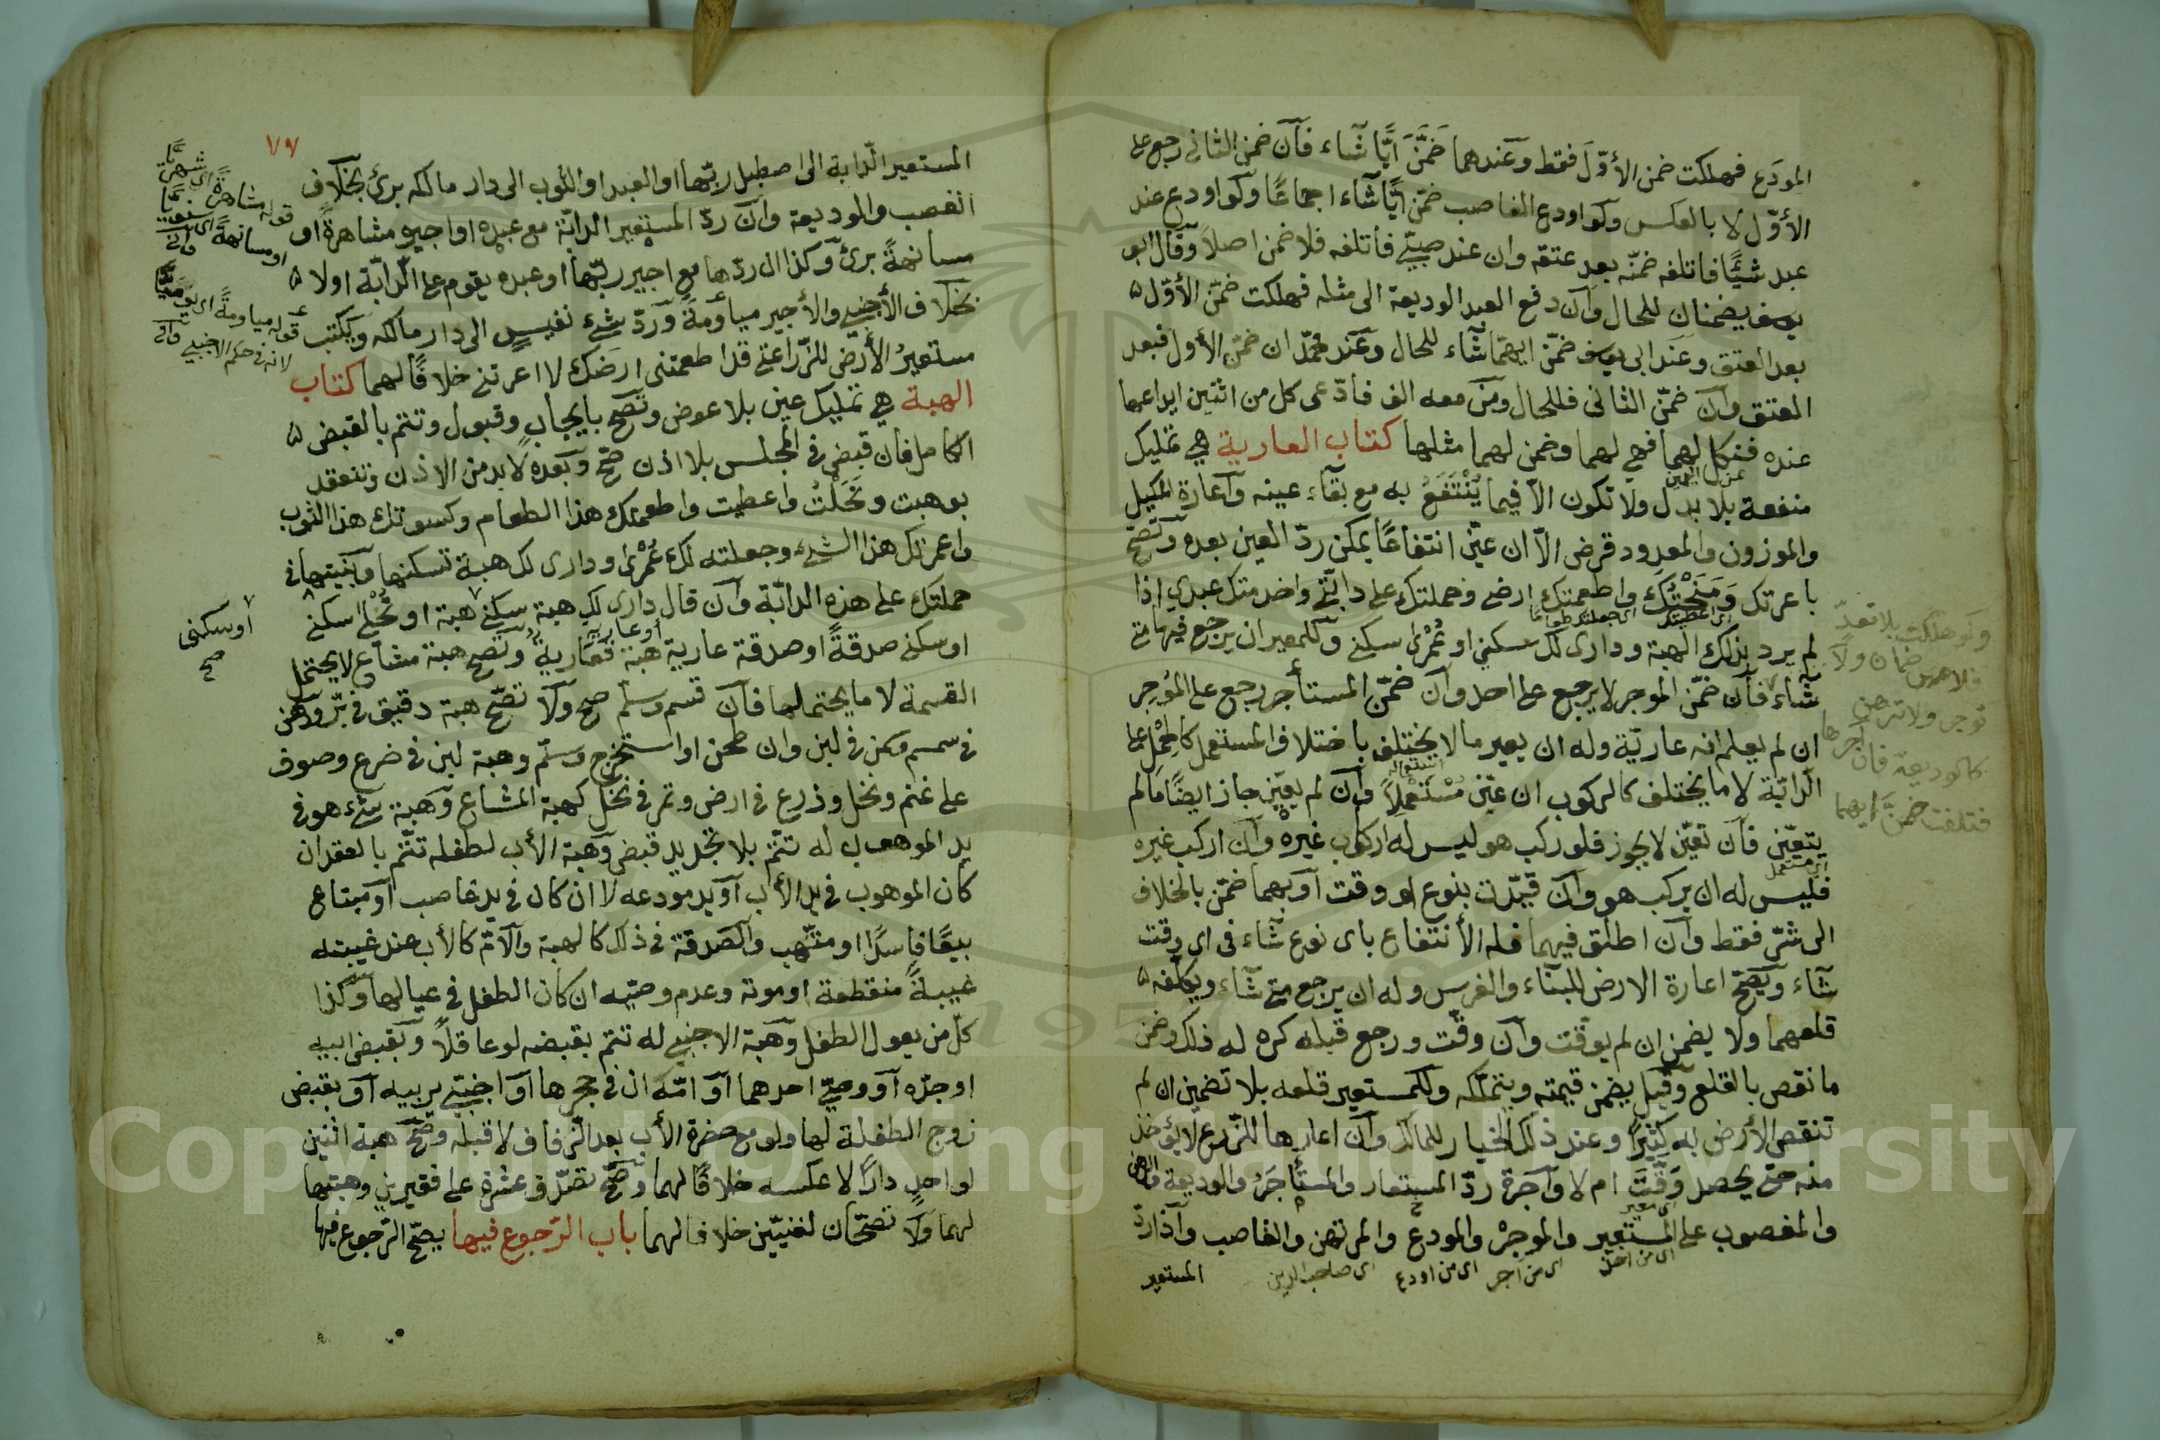 المودَع فهلكت ضمن الأوّل فقط وعندهما ضَمَّنَ ايًّا شاء فآن ضمن الثانى رجع على
الأوّل لا بالعكس ولو اودع الغاصب ضمّن ايًّا شاء اجماعًا ولو اودع عند
عبد شيئًا فاتلفه ضمنّه بعد عتقه وان عند صبىّ فأتلفه فلا ضمن اصلا وقال ابو
يوسف يضمنان للحال وآن دفع العبد الوديعة الى مثله فهلكت ضمّن الأوّل
بعد العتق وعند ابى يوسف ضمّن ايهما شاء للحال وعند محمّد ان ضمّن الأول فبعد
العتق وآن ضمّن الثانى فللحال ومن معه الف فادّعى كل من اثنين ايداعها
عنده فنكل لهما فهى لهما وضمن لهما مثلها كتاب العارية هى تمليك
عن اليمين
منفعة بلا بدل ولا تكون الّا فيما يُنْتَفَعُ به مع بقاء عينه وآعارة المكيل
والموزون والمعدود قرض الّا ان عيّن انتفاعًا يمكن ردّ العين بعده وتصحّ
باعرتك وَمَنَحْتُكَ واطعمتك ارضى وحملتك على دابّتى واخدمتك عبدى اذا
لم يرد بذلك الهبة ودارى لك سكنى او عُمْرى سكنى وللمعير ان يرجع فيها متى
شاء فآن ضمّن الموجر لا يرجع على احد وآن ضمّن المستأجر رجع على المُوجِر
ان لم يعلم انه عاريّة وله ان يعير ما لا يختلف باختلاف المستعمل كالحمل على
استعماله
الدّابّة لا ما يختلف كالركوب ان عيّن مُسْتَعْمِلاً وآن لم يعيّن جاز ايضًا مالم
يتعيّن فآن تعيّن لا يجوز فلو ركب هو ليس له اركاب غيره وآن اركب غيره
اى مستعمل
فليس له ان يركب هو وآن قيّدت بنوع او وقت آو بهما ضمّن بالخلاف
الى شرّ فقط وآن اطلق فيهما فله الأنتفاع باى نوع شاء فى اى وقت
شاء ويَصحّ اعارة الارض للبناء والغرس وله ان يرجع متى شاء ويكلّفه
قلعهما ولا يضمن ان لم يوقّت وآن وقّت ورجع قبله كره له ذلك وضمن
ما نقص بالقلع وقيل يضمن قيمته ويتملّكه وللمستعير قلعه بلا تضمين ان لم
تنقص الأرض به كثيرًا وعند ذلك الخيار للمالك وآن اعارها للزّرع لا يؤخذ
منه حتى يحصد وَقَّتَ ام لا وآجرة ردّ المستعار والمستأجَر والوديعة والرهن
والمغصوب على المستعير والموجر والمودع والمرتهن والغاصب وآذا ردّ
اى من آجر اى من اودع اى صاحب الدين
المستعير
ولو هلكت بلا تعدّ
فلا ضمان ولا
توجر ولا ترهن
كالوديعة فان آجرها
فتلفت ضمَّن ايهما
٧٧
المستعير الدّابة الى اصطبل ربّها او العبد او الثوب الى دار مالكه برئ بخلاف
الغصب والوديعة وآن ردّ المستعير الدابّة مع عبده او اجيره مشاهرةً او
مسانهةً برئ وكذا ان ردّها مع اجير ربّها او عبده يقوم على الدّابّة اولا
بخلاف الأجنبى والأجير مياومةً وردّ شىء نفيسٍ الى دار مالكه ويكتب
مستعيرُ الأرض للزّراعة قد اطعمتنى ارضك لا اعرتنى خلافًا لهما كتاب
الهبة هى تمليك عين بلا عوض وتصحّ بايجاب وقبول وتتم بالقبض
الكامل فان قبض فى المجلس بلا اذن صحّ وبعده لا بد من الاذن وتنعقد
بوهبت ونَحَلْتُ واعطيت واطعمتك هذا الطعام وكسوتك هذا الثوب
واعمرتك هذا الشىء وجعلته لك عُمْرى ودارى لك هبة تسكنها وبنيتها فى
حملتك على هذه الدابّة وآن قال دارى لك هبة سكنى هبة او نُحْلى سكنى
او سكنى صدقةً او صدقة عارية هبة فعارية وتصح هبة مشاع لا يحتمل
او عارية
القسمة لا ما يحتملها فآن قسم وسلّم صح وآلا تصّح هبة دقيق فى برّ ودهن
فى سمسم وسمن فى لبن وان طحن او استخرج وسلّم وهبة لبن فى ضرع وصوف
على غنم ونخل وزرع فى ارض وتمر فى نخل كهبة المشاع وهبة شىء هو فى
يد الموهوب له تتمّ بلا تجديد قبض وهبة الأب لطفله تتمّ بالعقد ان
كان الموهوب فى يد الأب آو يد مودعه لا ان كان فى يد غاصب آو مبتاع
بيعًا فاسدًا او متّهب والصّدقة فى ذلك كالهبة والآمّ كالأب عند غيبته
غيبةً منقطعة او موته وعدم وصيّه ان كان الطفل فى عيالها وكذا
كلّ من يعول الطفل وهبة الاجنبى له تتم بقبضه لو عاقلاً وبقبض ابيه
او جدّه آو وصىّ احدهما آو امّه ان فى حجرها آو اجنبىّ يربيه آو بقبض
زوج الطفلة لها ولو مع حضرة الأب بعد الزفاف لا قبله وصحّ هبة اثنين
لواحدٍ دارًا لا عكسه خلافًا لهما وصحّ تصدّق عشرة على فقيرين وهبتها
لهما ولا تصحّان لغنيّين خلافا لهما باب الرّجوع فيها يصحّ الرّجوع فيها
قوله مشاهرةً اى شهريًّا
او مسانهةً اى سنويًّا
قوله مياومةً اى يوميًّا
لانه فى حكم الاجنبى
او سكنى
صح
Copyright © King Saud University
1957